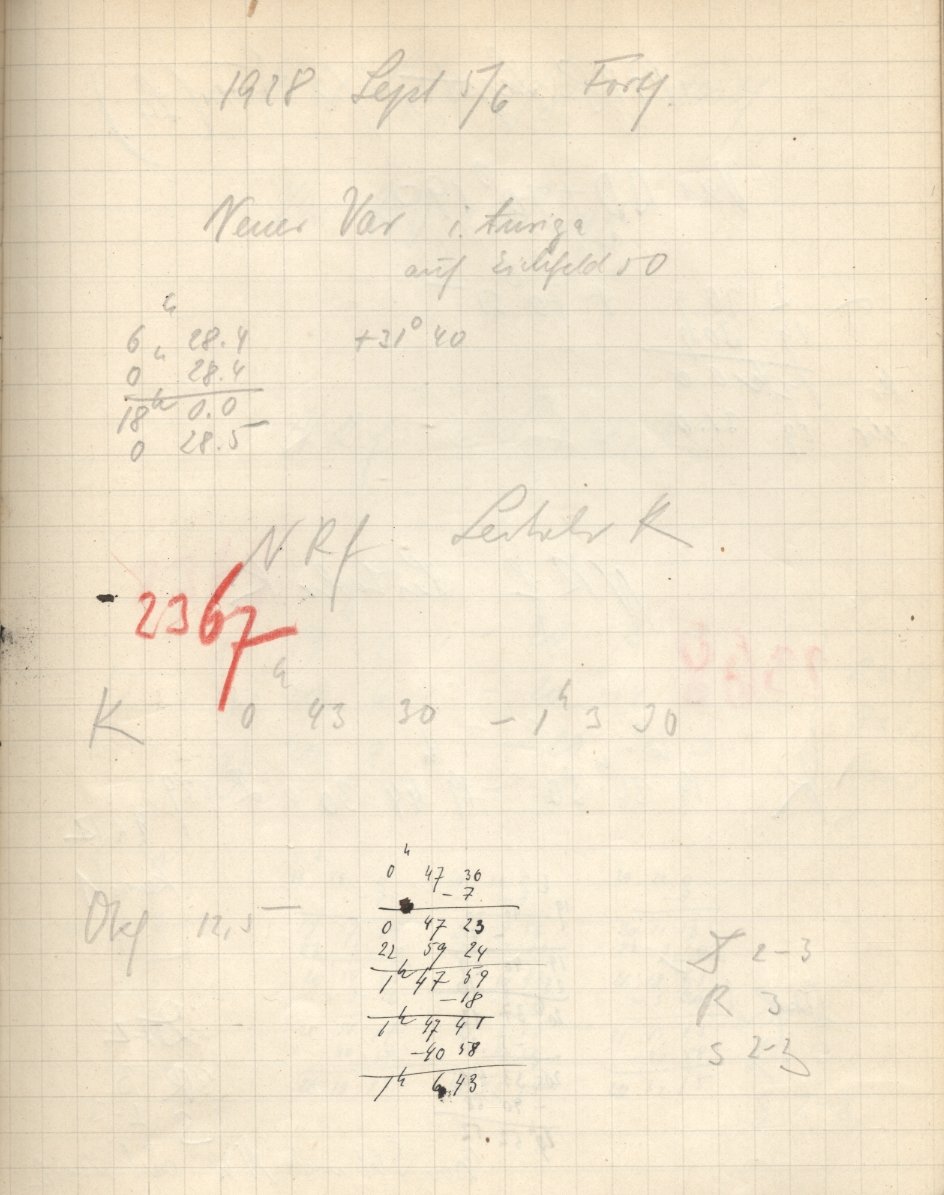 1928 Sept 5/6 Forts.
Neuer Var i. Auriga
auf Eichfeld 50
6h 28.4 +31° 40
0h 28.4
18h 0.0
0 28.5
N Rf K
2367
K 0h 43 30 - 1h 3 30
12,5
0h 47 30
- 7
0 47 23
22 59 24
1h 47 59
- 18
1h 47 41
- 40 58
1h 6 43
2-3
R 3
S 2-3